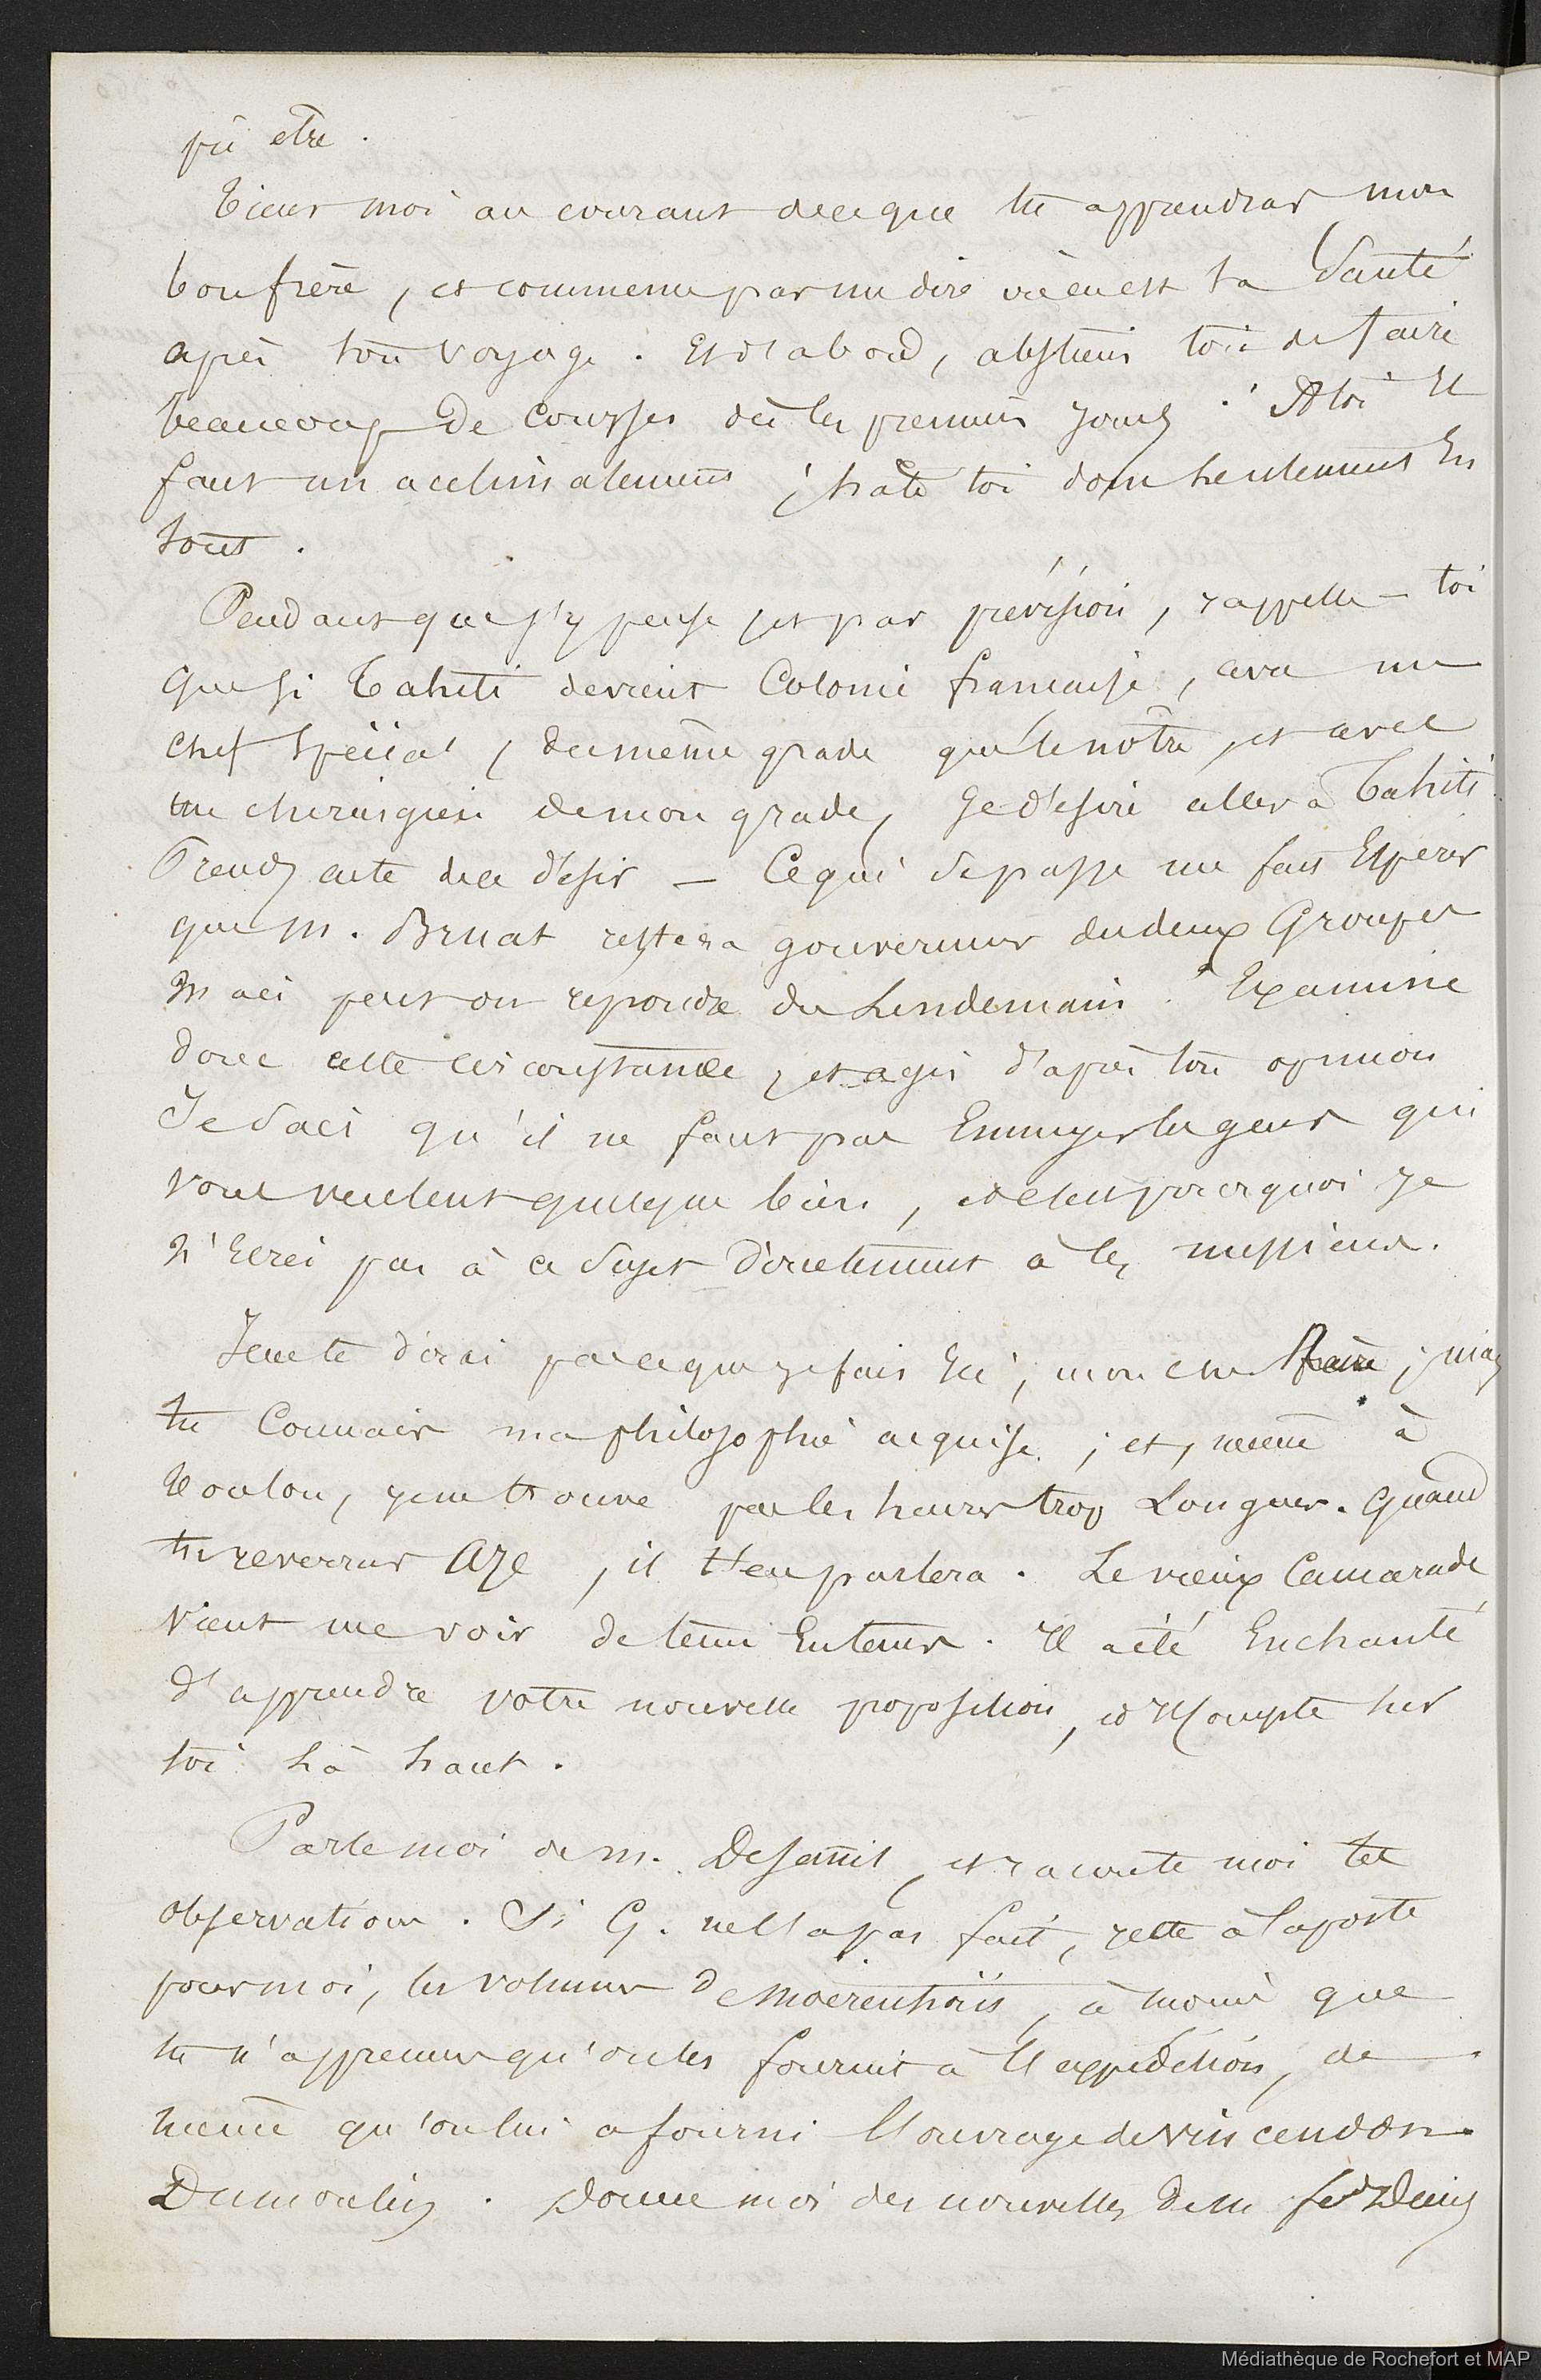 pû être.
Tiens moi au courant de ce que tu apprendras mon
bon frère, et commence par me dire où en est ta Santé
après ton voyage. Et d'abord, abstiens toi de faire
beaucoup de Courses dès les premiers jours. A toi Il
faut un acclimatement ; hate toi donc lentement En
tout.
Pendant que j'y pense et par prévision, rappelle-toi
que si Tahiti devient Colonie française, avec un
chef Spécial, du même grade que le nôtre, et avec
un chirurgien de mon grade, Je désire aller à Tahiti.
Prends acte de ce désir — Ce qui se passe me fait Espérer
que M. Bruat restera gouverneur des deux Groupes
Mais peut on répondre du Lendemain. Examine
donc cette circonstance, et agis d'après ton opinion
Je sais qu'il ne faut pas Ennuyer les gens qui
vous veulent quelque bien, et c'est pourquoi je
n'Ecris pas à ce Sujet directement à ces messieurs.
Je ne te dirai pas ce que je fais Ici, mon cher frère ; mais
tu Connais ma philosophie acquise ; et, même à
Toulon, je ne trouve pas les heures trop Longues. Quand
tu reverras Aze, il t'en parlera. Le vieux Camarade
vient me voir de tems En tems. Il a été Enchanté
d'apprendre votre nouvelle proposition, et Il compte sur
toi là haut.
Parle moi de M. Desannis, et raconte moi tes
observations. Si G. ne l'a pas fait, jette à la poste
pour moi, les volumes de Moerenhoüs, à moins que
tu n'apprennes qu'on les fournit à l'expédition, de
même qu'on lui a fourni l'ouvrage de Vincendon
Dumoulin. Donne moi des nouvelles de M ferd Denis